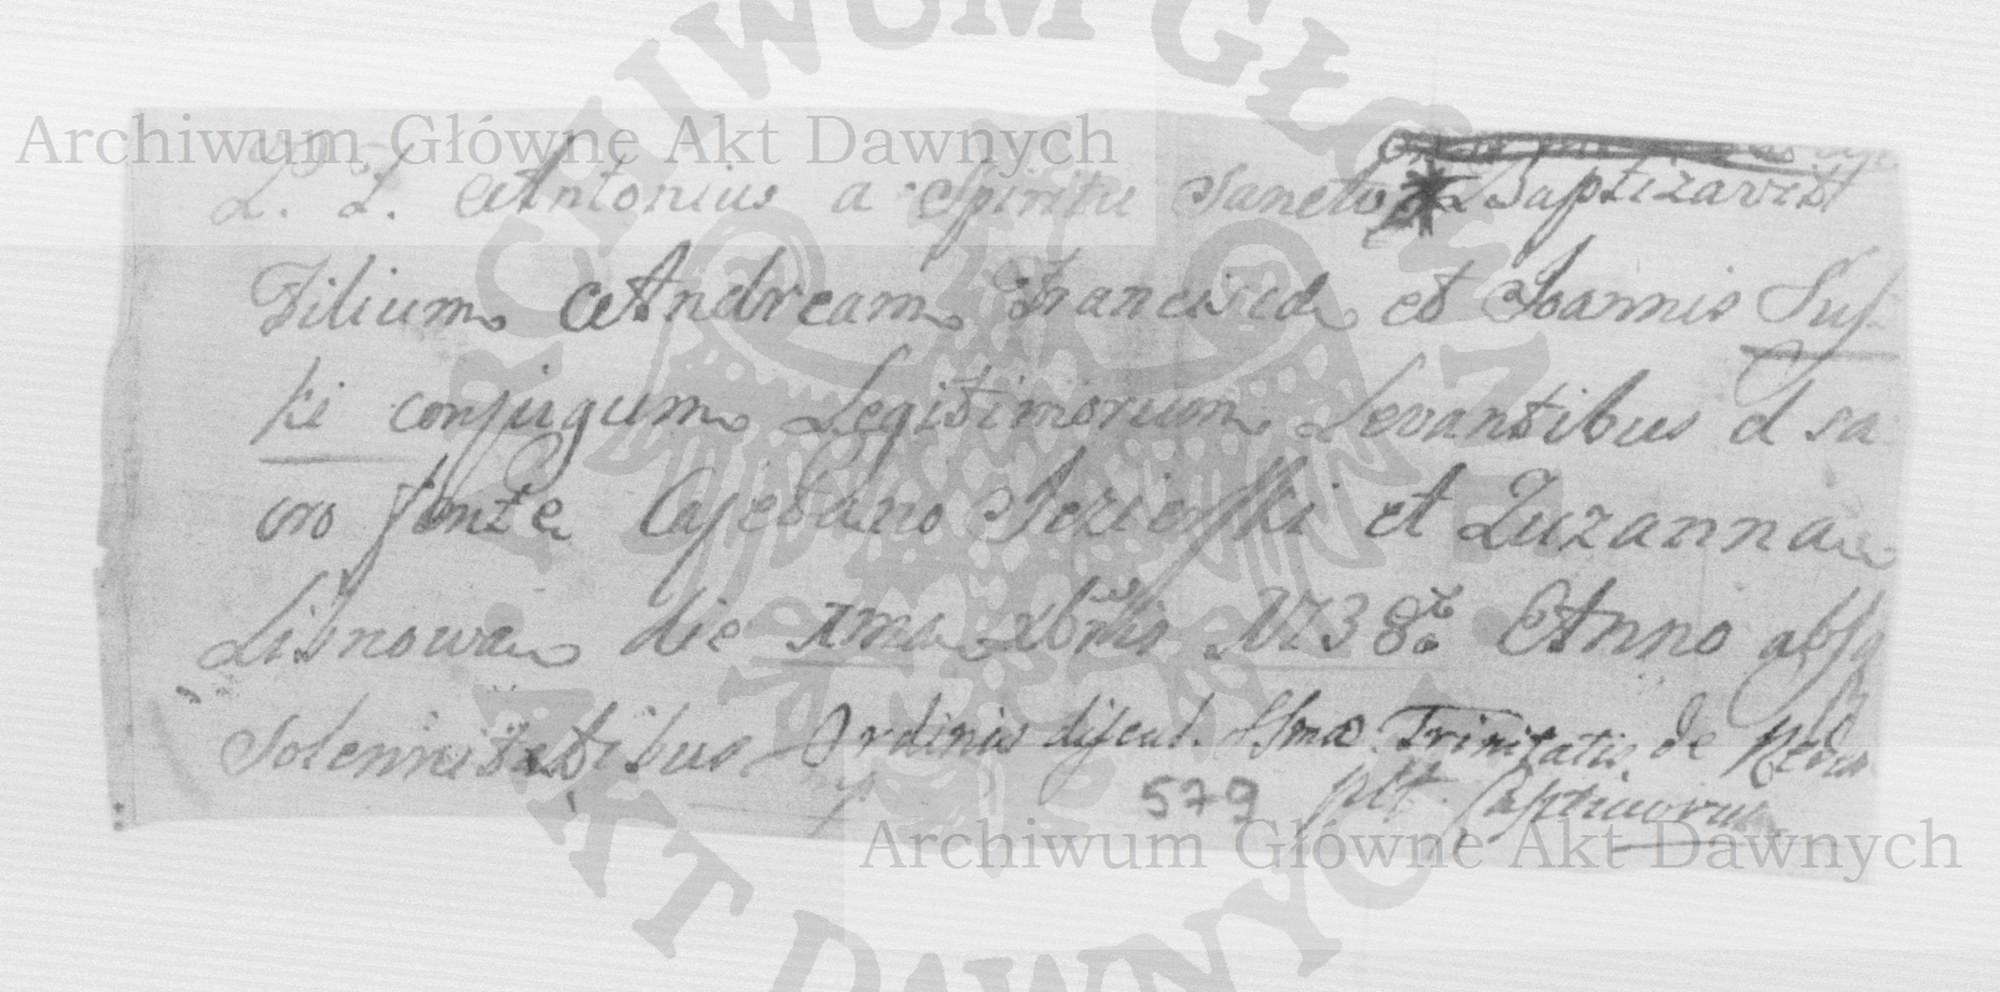 ARCHIWUM GŁÓWNE AKT DAWNYCH
Archiwum Główne Akt Dawnych
Antonius a Spiritu Sancto Baptizavit
Filium Andream Francisca et Joannis Sus-
ki conjugum Legitimorum Levantibus d sa
cro fonte Cajetano Jezierski et Zuzanna
Lisnowa die xbris 1738 Anno absq
Solennitatibus Ordinis discal. SSmæ Trinitatis de Rede
579 Captivorum
Archiwum Główne Akt Dawnych